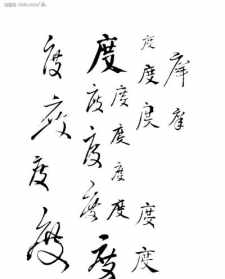 度度
度度度度度
度度度度
度度度度度
度度度度